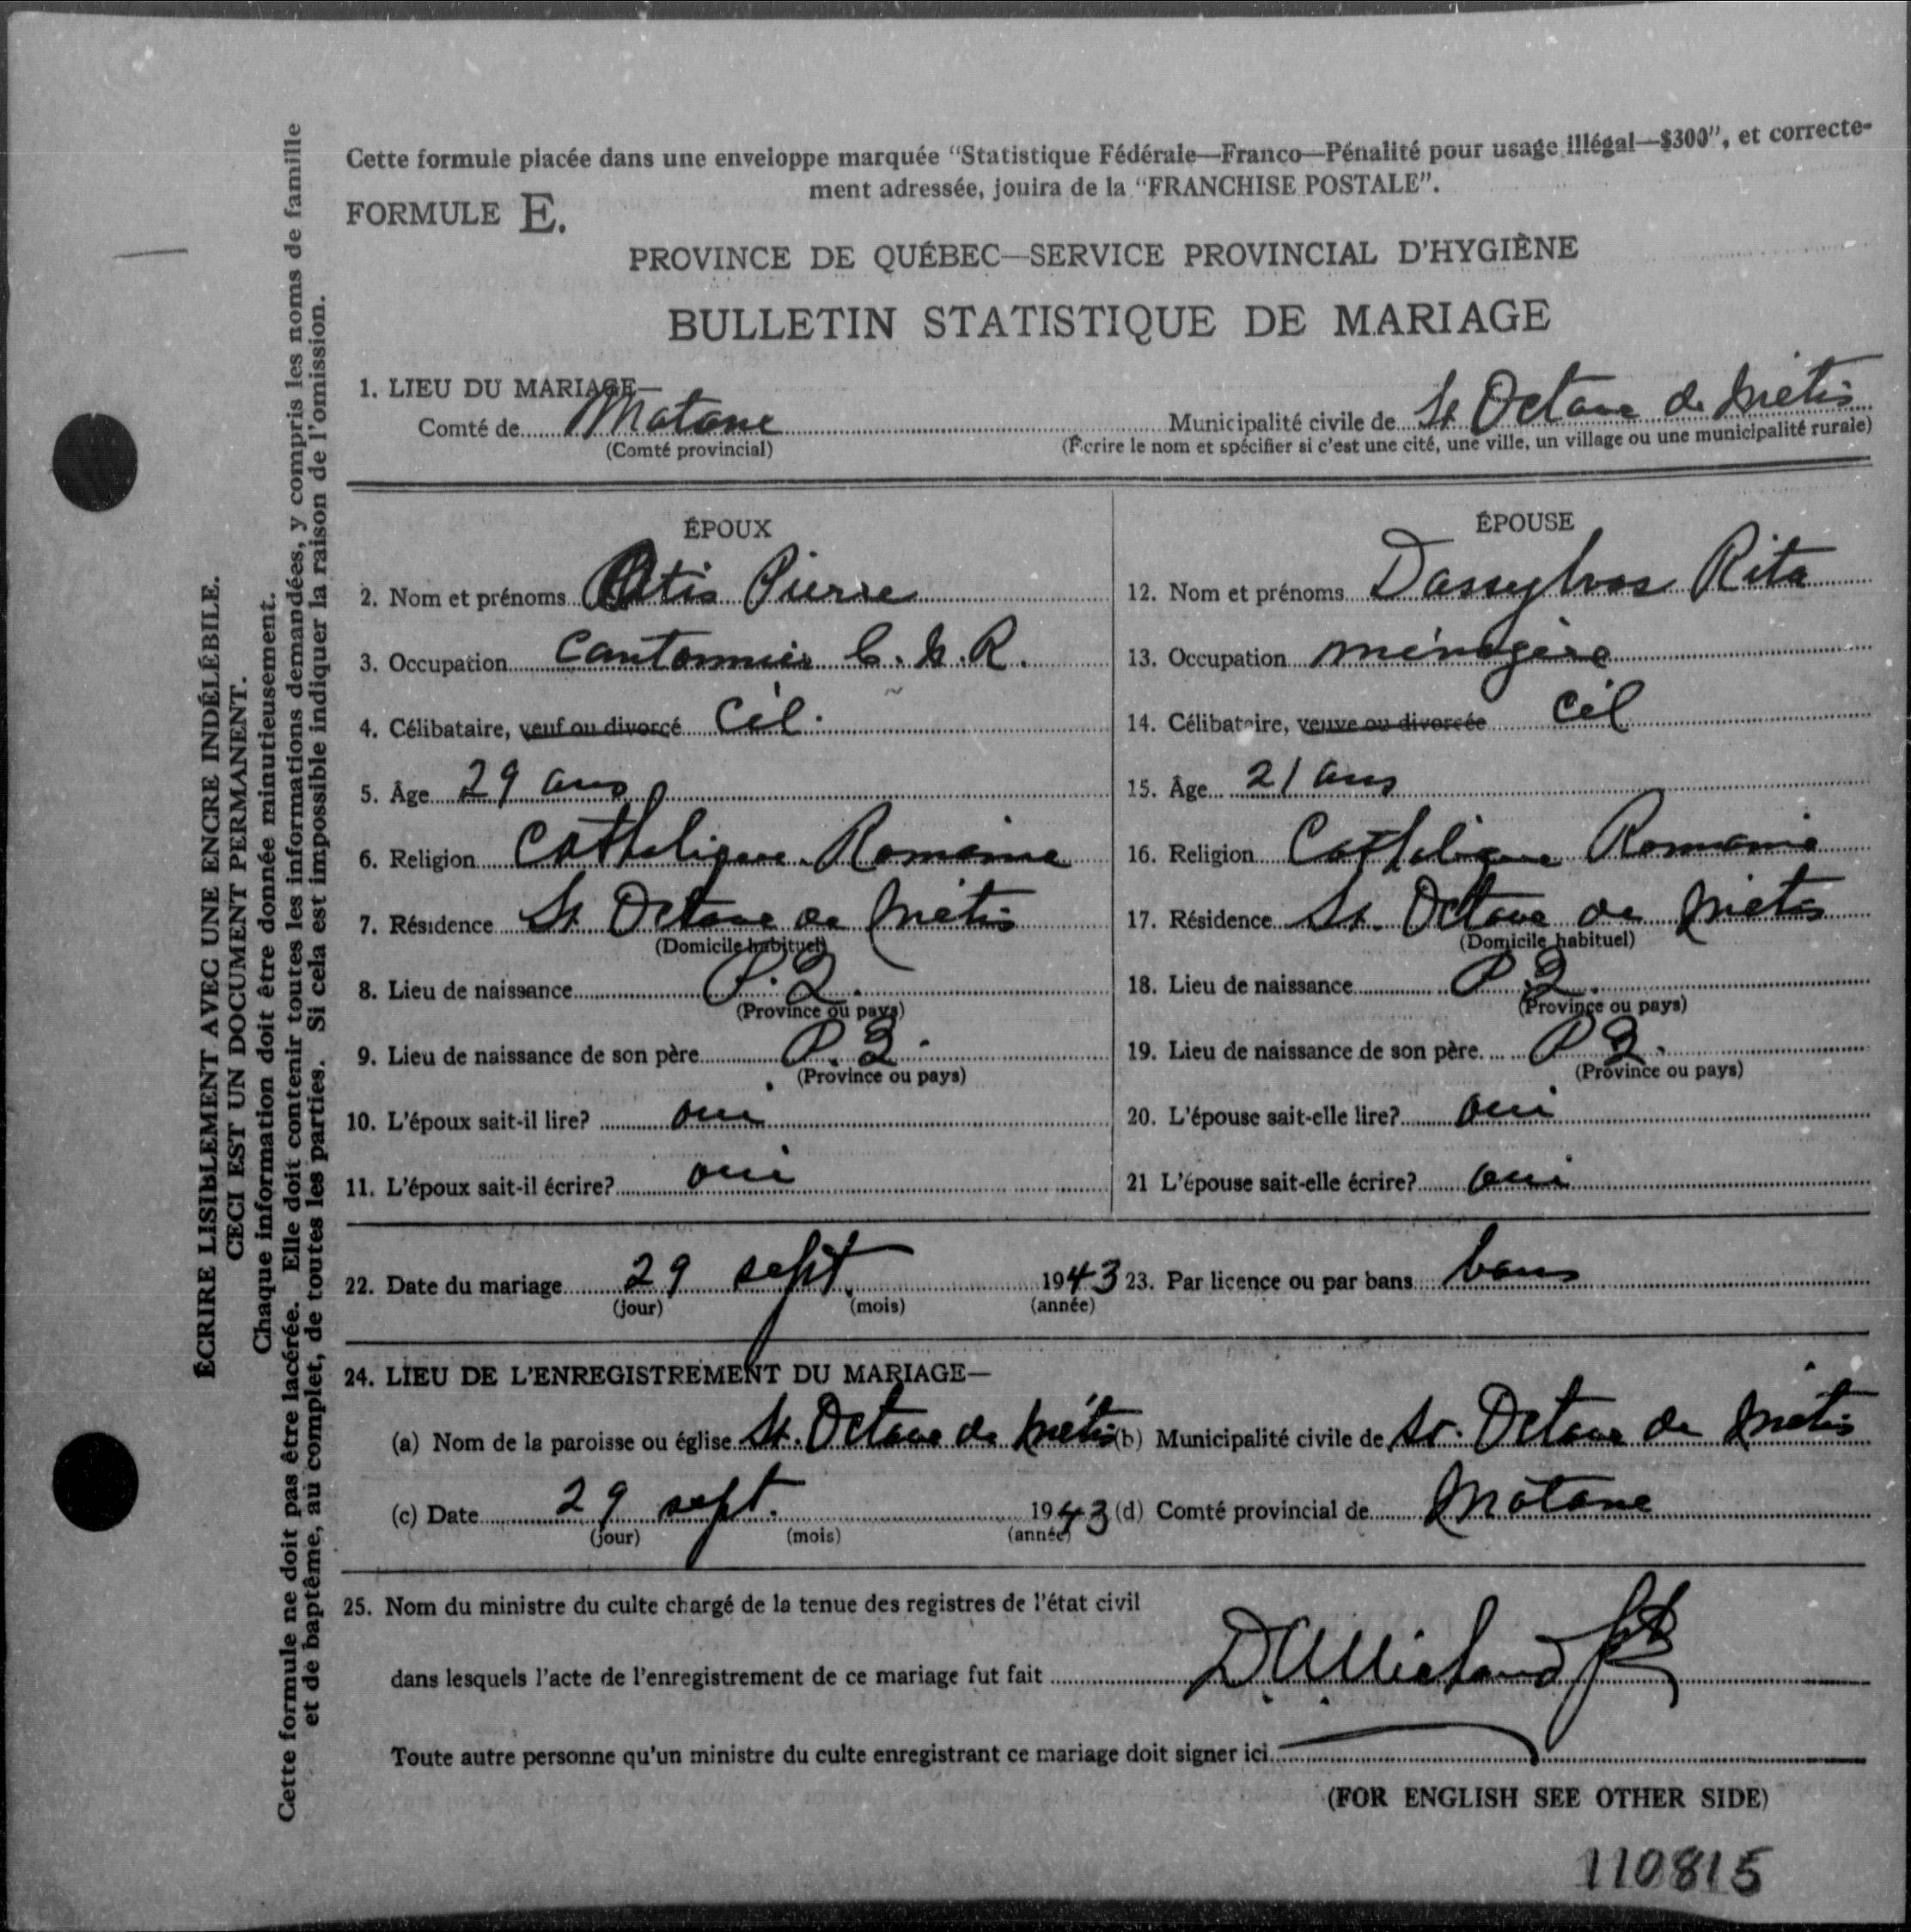 Cette formule placée dans une enveloppe marquée "Statistique Fédérale—Franco—Pénalité pour usage illégal—$300", et correcte-
ment adressée, jouira de la "FRANCHISE POSTALE".
FORMULE E.
PROVINCE DE QUÉBEC—SERVICE PROVINCIAL D'HYGIÈNE
BULLETIN STATISTIQUE DE MARIAGE
1. LIEU DU MARIAGE—
Comté de Matane Municipalité civile de St Octave de Métis
(Comté provincial) (Écrire le nom et spécifier si c'est une cité, une ville, un village ou une municipalité rurale)
ÉPOUX
2. Nom et prénoms Otis Pierre
3. Occupation cantonnier C. N. R.
4. Célibataire, veuf ou divorcé Cél.
5. Âge 29 ans
6. Religion Catholique Romaine
7. Résidence St Octave de Métis
(Domicile habituel)
8. Lieu de naissance P. Q.
(Province ou pays)
9. Lieu de naissance de son père P. Q.
(Province ou pays)
10. L'époux sait-il lire? oui
11. L'époux sait-il écrire? oui
ÉPOUSE
12. Nom et prénoms Dassylvas Rita
13. Occupation ménagère
14. Célibataire, veuve ou divorcée Cél
15. Âge 21 ans
16. Religion Catholique Romaine
17. Résidence St. Octave de Métis
(Domicile habituel)
18. Lieu de naissance P. Q.
(Province ou pays)
19. Lieu de naissance de son père P Q.
(Province ou pays)
20. L'épouse sait-elle lire? oui
21 L'épouse sait-elle écrire? oui
22. Date du mariage 29 sept. 1943 23. Par licence ou par bans bans
(jour) (mois) (année)
24. LIEU DE L'ENREGISTREMENT DU MARIAGE—
(a) Nom de la paroisse ou église St. Octave de Métis (b) Municipalité civile de St. Octave de Métis
(c) Date 29 sept. 1943 (d) Comté provincial de Matane
(jour) (mois) (année)
25. Nom du ministre du culte chargé de la tenue des registres de l'état civil
dans lesquels l'acte de l'enregistrement de ce mariage fut fait
Toute autre personne qu'un ministre du culte enregistrant ce mariage doit signer ici
(FOR ENGLISH SEE OTHER SIDE)
110815
ÉCRIRE LISIBLEMENT AVEC UNE ENCRE INDÉLÉBILE.
CECI EST UN DOCUMENT PERMANENT.
Chaque information doit être donnée minutieusement.
Cette formule ne doit pas être lacérée. Elle doit contenir toutes les informations demandées, y compris les noms de famille
et de baptême, au complet, de toutes les parties. Si cela est impossible indiquer la raison de l'omission.